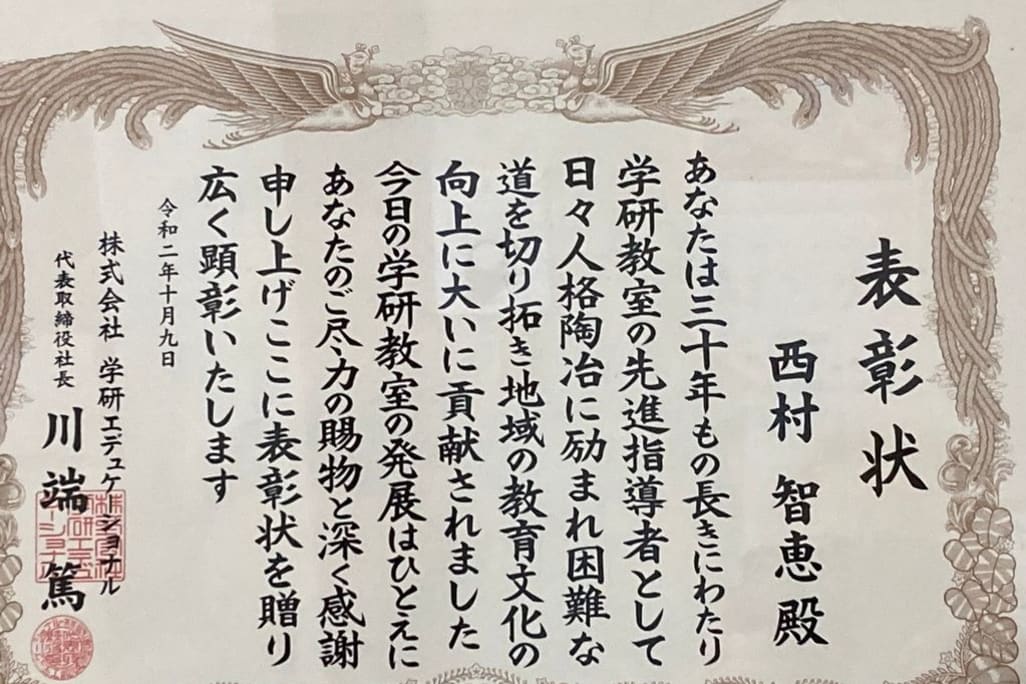 表彰状
西村 智恵 殿
あなたは三十年もの長きにわたり
学研教室の先進指導者として
日々人格陶冶に励まれ困難な
道を切り拓き地域の教育文化の
向上に大いに貢献されました
今日の学研教室の発展はひとえに
あなたのご尽力の賜物と深く感謝
申し上げここに表彰状を贈り
広く顕彰いたします
令和二年十月九日
株式会社 学研エデュケーショナル
代表取締役社長 川端 篤